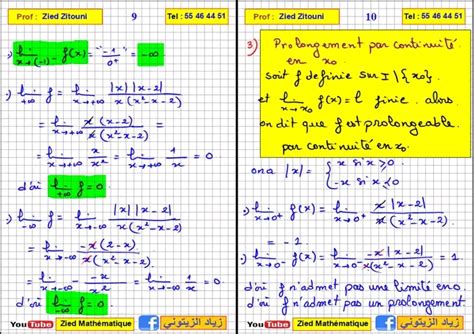 Prof : Zied Zitouni 9 Tel : 55 46 44 51
·) lim x→(-1)- f(x) = "-1/0+" = -∞
·) lim +∞ f = lim x→+∞ |x| |x-2| / x(x²-x-2)
= lim x→+∞ x(x-2) / x(x²-x-2)
= lim x→+∞ x/x² = lim x→+∞ 1/x = 0
d'où lim +∞ f = 0.
·) lim -∞ f = lim x→-∞ |x| |x-2| / x(x²-x-2)
= lim x→-∞ -x(2-x) / x(x²-x-2)
= lim -∞ -x/x² = lim x→-∞ 1/x = 0
d'où lim -∞ f = 0
YouTube Zied Mathématique f زياد الزيتوني
Prof : Zied Zitouni 10 Tel : 55 46 44 51
3) Prolongement par continuité
en x₀.
soit f definie sur I \ {x₀}
et lim x→x₀ f(x) = l finie. alors
on dit que f est prolongeable
par continuité en x₀.
on a |x| = { x si x ≥ 0
-x si x ≤ 0
·) lim x→0+ f(x) = lim x→0+ x |x-2| / x(x²-x-2)
= -1.
·) lim x→0- f(x) = lim x→0- -x |x-2| / x(x²-x-2) = 1
d'où f n'admet pas une limite en 0.
d'où f n'admet pas un prolongement
YouTube Zied Mathématique f زياد الزيتوني